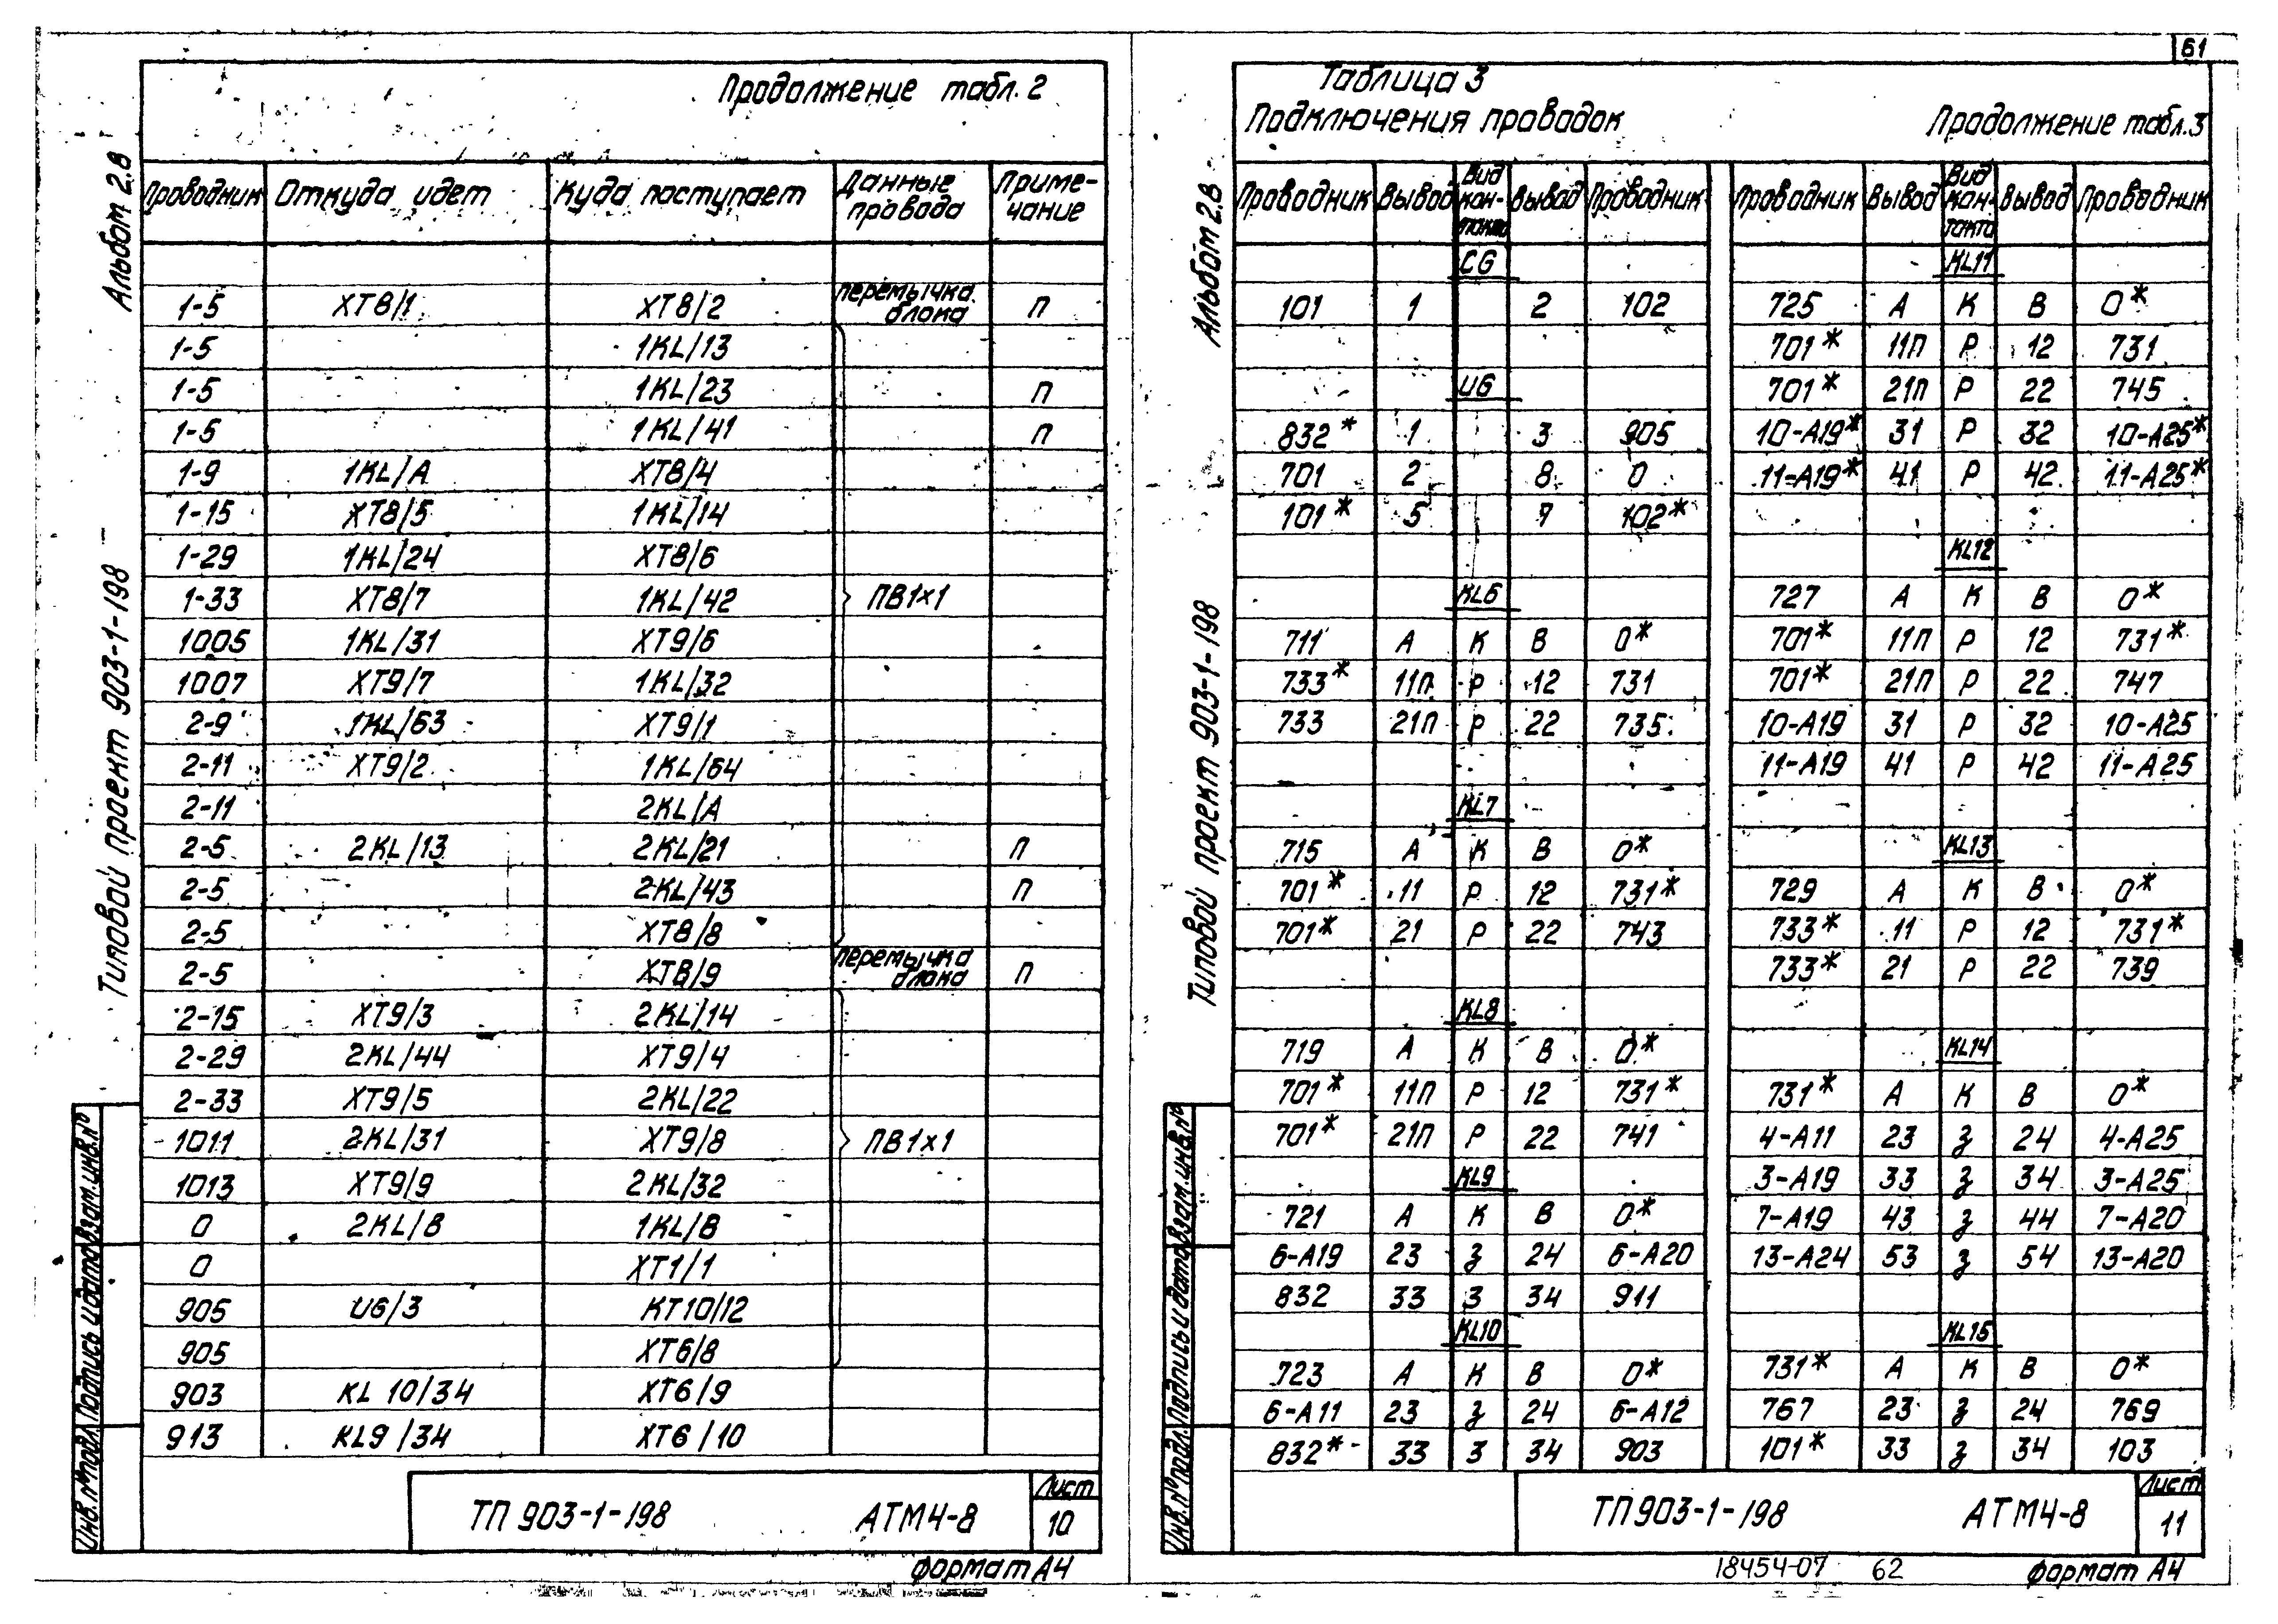 61
Продолжение табл. 2
Альбом 2.8
Типовой проект 903-1-198
Проводник Откуда идет Куда поступает Данные провода Приме-чание
1-5 XT8/1 XT8/2 перемычка блока П
1-5 1KL/13
1-5 1KL/23 П
1-5 1KL/41 П
1-9 1KL/A XT8/4
1-15 XT8/5 1KL/14
1-29 1KL/24 XT8/6
1-33 XT8/7 1KL/42 ПВ1×1
1005 1KL/31 XT9/6
1007 XT9/7 1KL/32
2-9 1KL/63 XT9/1
2-11 XT9/2 1KL/64
2-11 2KL/A
2-5 2KL/13 2KL/21 П
2-5 2KL/43 П
2-5 XT8/8
2-5 XT8/9 перемычка блока П
2-15 XT9/3 2KL/14
2-29 2KL/44 XT9/4
2-33 XT9/5 2KL/22
1011 2KL/31 XT9/8 ПВ1×1
1013 XT9/9 2KL/32
0 2KL/B 1KL/B
0 XT1/1
905 UG/3 KT10/12
905 XT6/8
903 KL 10/34 XT6/9
913 KL9/34 XT6/10
Инв. № подл. Подпись и дата Взам. инв. №
ТП 903-1-198 АТМ4-8 Лист 10
формат А4
Таблица 3
Подключения проводок
Продолжение табл.3
Альбом 2.8
Типовой проект 903-1-198
Проводник Вывод Вид кон-такта Вывод Проводник
CG
101 1 2 102
UG
832* 1 3 905
701 2 8 0
101* 5 7 102*
KL6
711 A K B 0*
733* 11П Р 12 731
733 21П Р 22 735
KL7
715 A K B 0*
701* 11 Р 12 731*
701* 21 Р 22 743
KL8
719 A K B 0*
701* 11П Р 12 731*
701* 21П Р 22 741
KL9
721 A K B 0*
6-A19 23 З 24 6-A20
832 33 З 34 911
KL10
723 A K B 0*
6-A11 23 З 24 6-A12
832* 33 З 34 903
Проводник Вывод Вид кон-такта Вывод Проводник
KL11
725 A K B 0*
701* 11П Р 12 731
701* 21П Р 22 745
10-A19* 31 Р 32 10-A25*
11-A19* 41 Р 42 11-A25*
KL12
727 A K B 0*
701* 11П Р 12 731*
701* 21П Р 22 747
10-A19 31 Р 32 10-A25
11-A19 41 Р 42 11-A25
KL13
729 A K B 0*
733* 11 Р 12 731*
733* 21 Р 22 739
KL14
731* A K B 0*
4-A11 23 З 24 4-A25
3-A19 33 З 34 3-A25
7-A19 43 З 44 7-A20
13-A24 53 З 54 13-A20
KL15
731* A K B 0*
767 23 З 24 769
101* 33 З 34 103
Инв. № подл. Подпись и дата Взам. инв. №
ТП 903-1-198 АТМ4-8 Лист 11
18454-07 62 формат А4